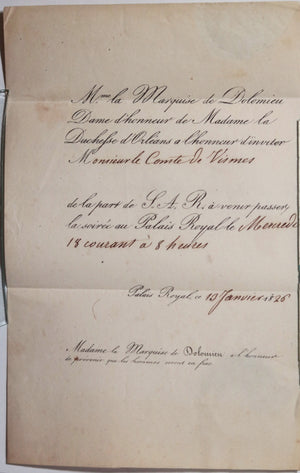 Mme la Marquise de Dolomieu
Dame d'honneur de Madame la
Duchesse d'Orléans a l'honneur d'inviter
Monsieur le Comte de Vismes
de la part de S. A. R. à venir passer
la soirée au Palais Royal le Mercredi
18 courant à 8 heures
Palais Royal, ce 13 Janvier 1826
Madame la Marquise de Dolomieu a l'honneur
de prévenir que les hommes seront en frac